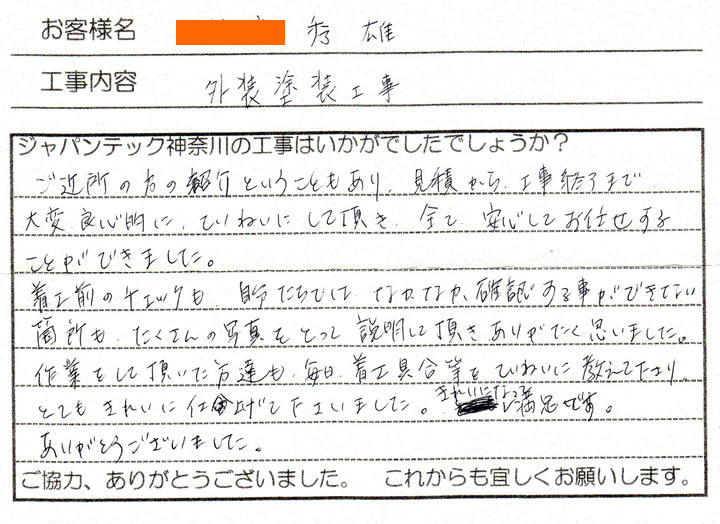 お客様名 秀雄
工事内容 外装塗装工事
ジャパンテック神奈川の工事はいかがでしたでしょうか？
ご近所の方の紹介ということもあり、見積から、工事終了まで
大変、良心的に、ていねいにして頂き、全て、安心してお任せする
ことができました。
着工前のチェックも、自分たちでは、なかなか、確認する事ができない
箇所も、たくさんの写真をとって説明して頂きありがたく思いました。
作業をして頂いた方達も、毎日、着工具合等をていねいに教えて下さり、
とてもきれいに仕上げて下さいました。きれいになって満足です。
ありがとうございました。
ご協力、ありがとうございました。 これからも宜しくお願いします。